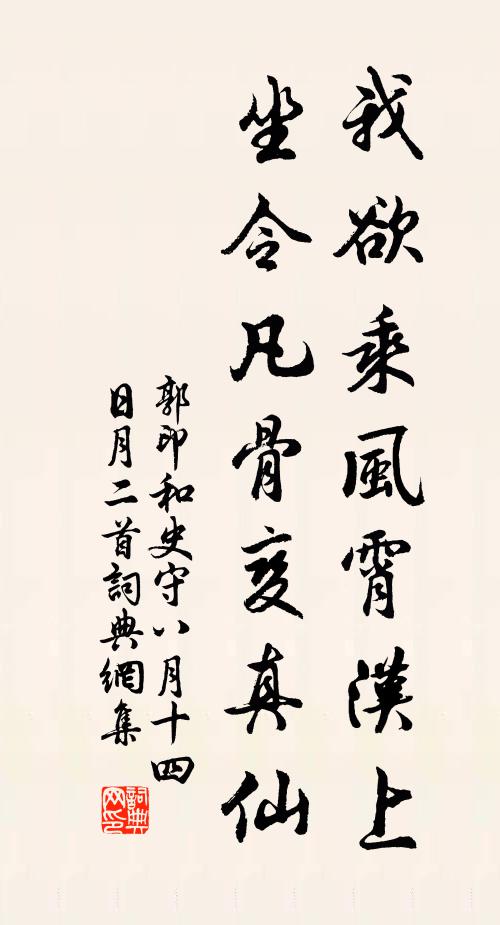 我欲乘風霄漢上
坐令凡骨变真仙
郭印和史守八月十四
日月二首詞典網集
詞典网印